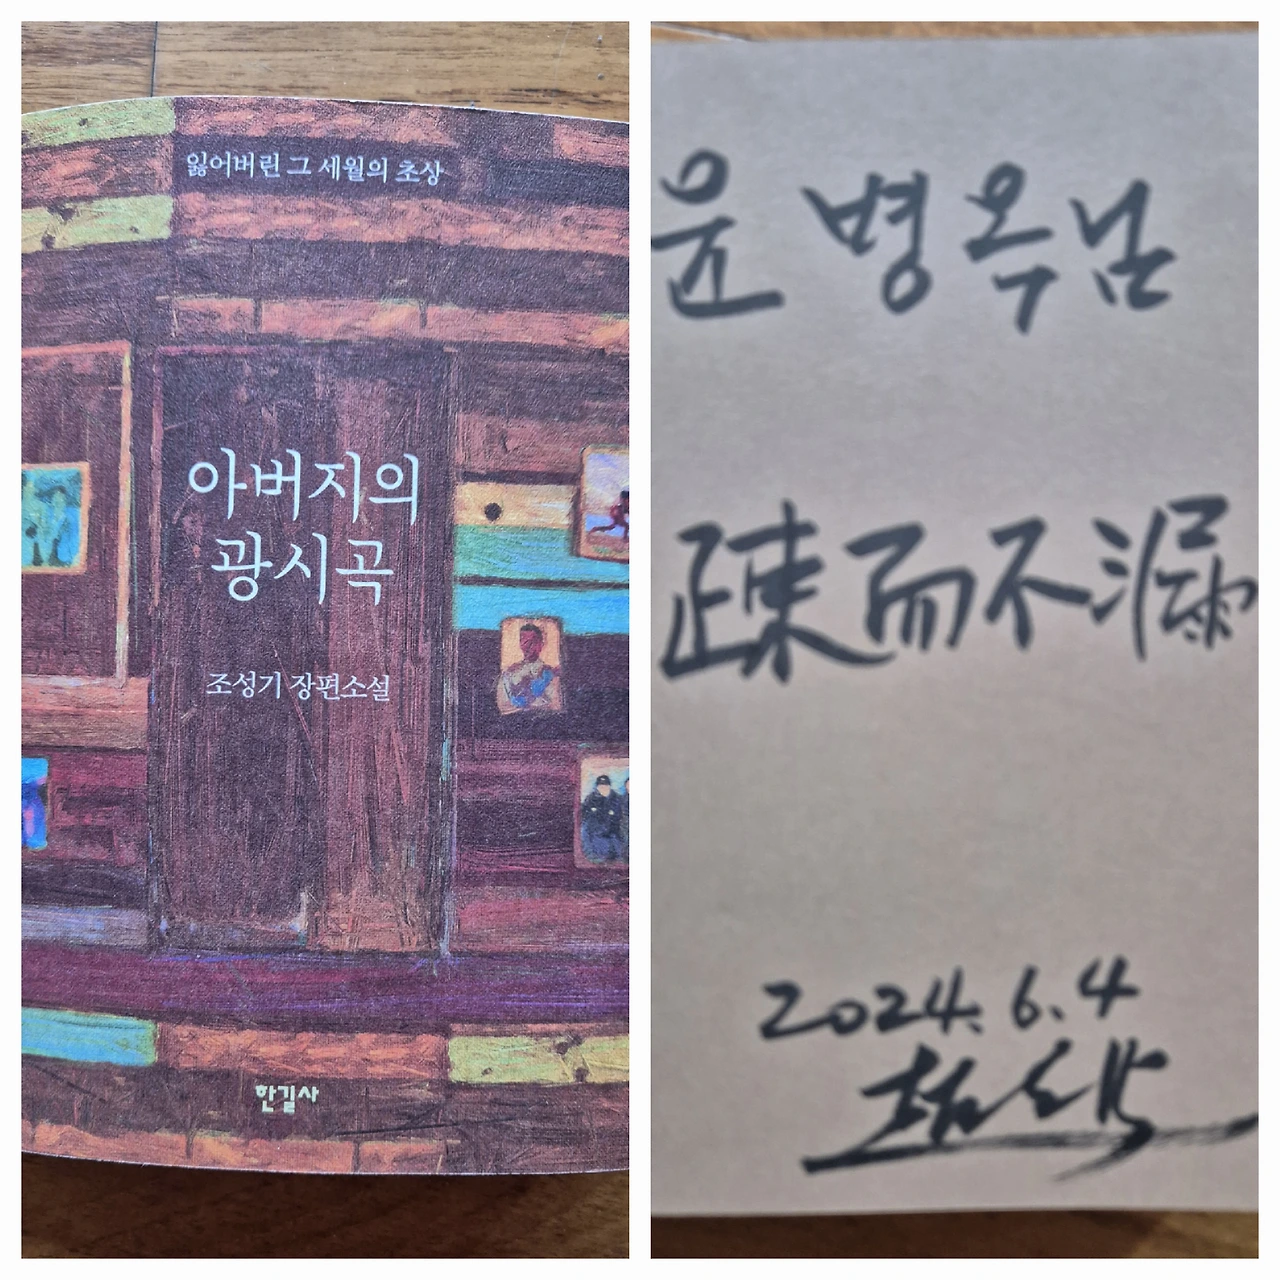 잃어버린 그 세월의 초상
아버지의
광시곡
조성기 장편소설
한길사
윤병옥님
疎而不漏
2024. 6. 4